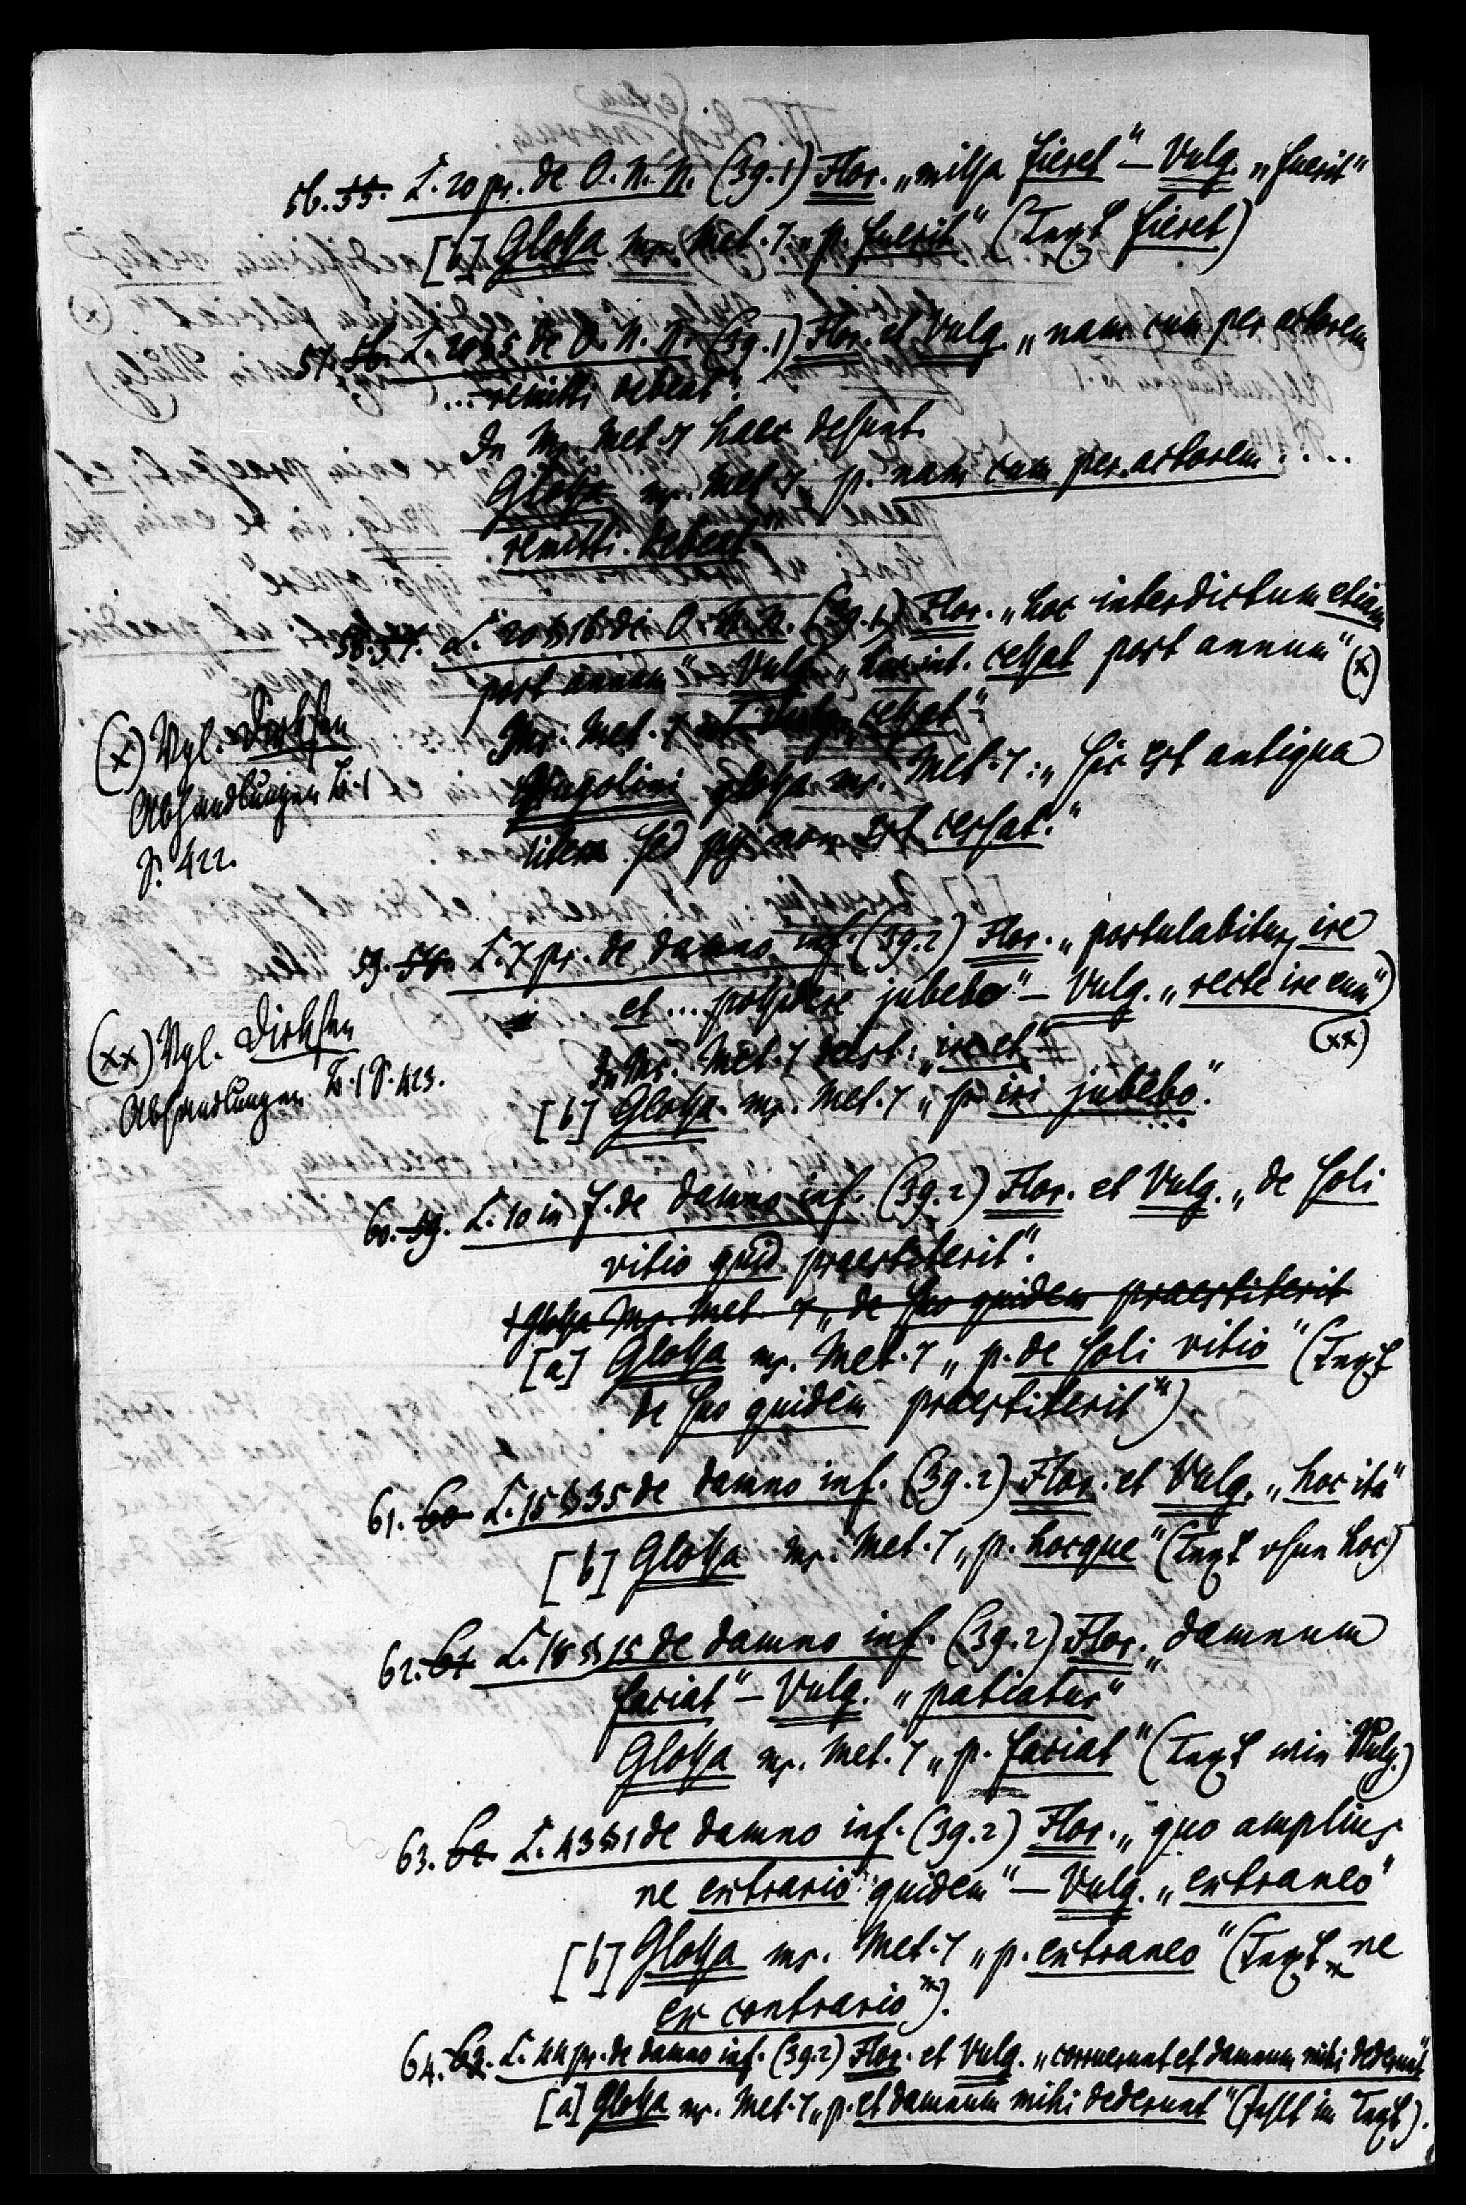 56. 55. L. 20 pr. de O. N. N. (39.1) Flor. „missa fieret“ – Vulg. „fuerit“
[b] Glossa ms. Met. 7 „p. fuerit“ (Text fieret)
57. 56. L. 20 § 5 de O. N. N. (39.1) Flor. et Vulg. „nam cum per actorem
... remitti debeat“.
In Ms. Met. 7 haec desunt.
Glossa ms. Met. 7 „p. nam cum per actorem ....
remitti debeat“
58. 57. L. 20 § 6 de O. N. N. (39.1) Flor. „hoc interdictum etiam
post annum“ – Vulg. „hoc int. cessat post annum“ (x)
Ms. Met. 7 ut Vulg. „cessat“.
Hugolini glossa ms. Met. 7: „hic est antiqua
litera sed pis. non est cessat.“
(x) Vgl. Dirksen
Abhandlungen B. 1
S. 422.
59. 58. L. 7 pr. de damno inf. (39.2) Flor. „postulabitur, ire
et .... possidere jubebo“ – Vulg. „recte ire eum“)
(xx)
In Ms. Met. 7 deest: „ire et“
[b] Glossa ms. Met. 7 „p. iri jubebo“.
(xx) Vgl. Dirksen
Abhandlungen B. 1 S. 423.
60. 59. L. 10 in f. de damno inf. (39.2) Flor. et Vulg. „de soli
vitio quid praestiterit“.
Glossa Ms. Met. 7 „de suo quidem praestiterit
[a] Glossa ms. Met. 7 „p. de soli vitio“ (Text
de suo quidem praestiterit“)
61. 60 L. 15 § 35 de damno inf. (39.2) Flor. et Vulg. „hoc ita“
[b] Glossa ms. Met. 7 „p. hocque“ (Text ohne hoc)
62. 61 L. 18 § 15 de damno inf. (39.2) Flor. „damnum
faciat“ – Vulg. „patiatur“
Glossa ms. Met. 7 „p. faciat“ (Text wie Vulg.)
63. 62. L. 43 § 1 de damno inf. (39.2) Flor. „quo amplius
ne extrario quidem“ – Vulg. „extraneo“
[b] Glossa ms. Met. 7 „p. extraneo“ (Text „ne
ex contrario“).
64. 63. L. 44 pr. de damno inf. (39.2) Flor. et Vulg. „corruerunt et damnum mihi dederunt“
[a] Glossa ms. Met. 7 „p. et damnum mihi dederunt“ (fehlt im Text).